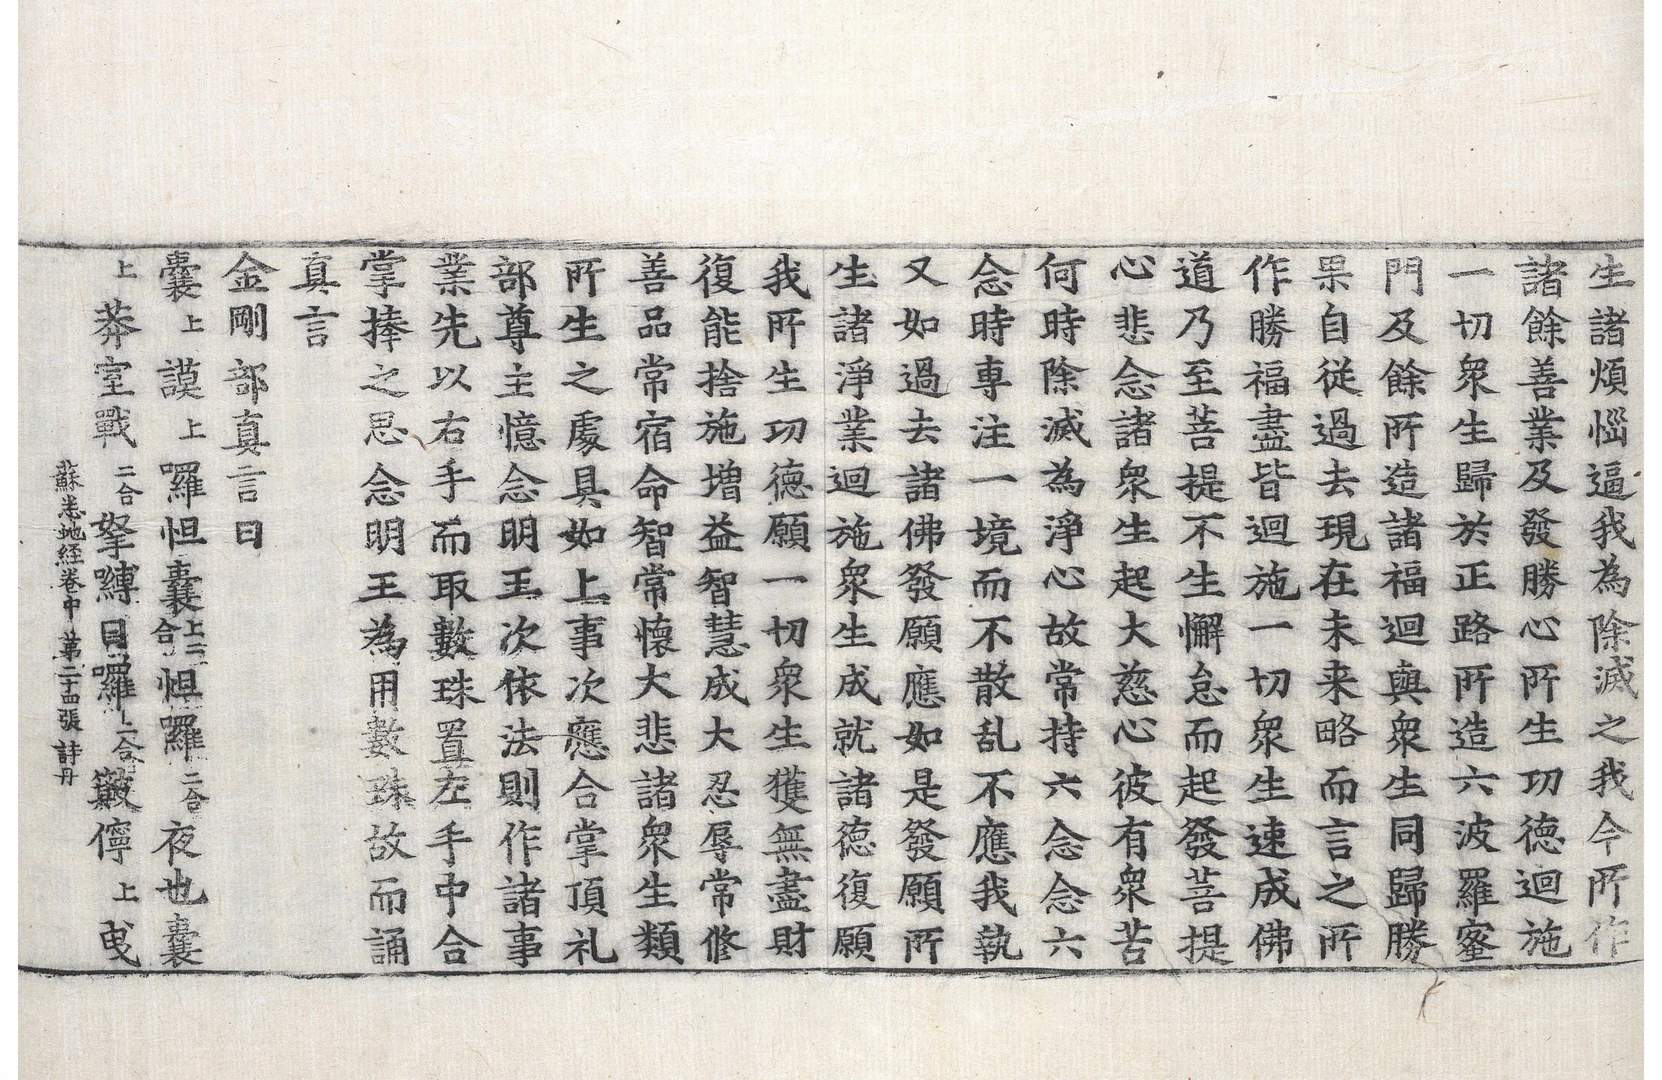 生諸煩惱逼我為除滅之我今所作
諸餘善業及發勝心所生功德迴施
一切衆生歸於正路所造六波羅蜜
門及餘所造諸福迴與衆生同歸勝
果自從過去現在未来略而言之所
作勝福盡皆迴施一切衆生速成佛
道乃至菩提不生懈怠而起發菩提
心悲念諸衆生起大慈心彼有衆苦
何時除滅為淨心故常持六念念六
念時專注一境而不散乱不應我執
又如過去諸佛發願應如是發願所
生諸淨業迴施衆生成就諸德復願
我所生功德願一切衆生獲無盡財
復能捨施增益智慧成大忍辱常修
善品常宿命智常懷大悲諸衆生類
所生之處具如上事次應合掌頂礼
部尊主憶念明王次依法則作諸事
業先以右手而取數珠置左手中合
掌捧之思念明王為用數珠故而誦
真言
金剛部真言曰
囊上謨上囉怛囊上二合怛羅二合夜也囊
上莽室戰二合拏縛日囉上二合簸儜上曵
蘇悉地經卷中 第二十四張 詩丹